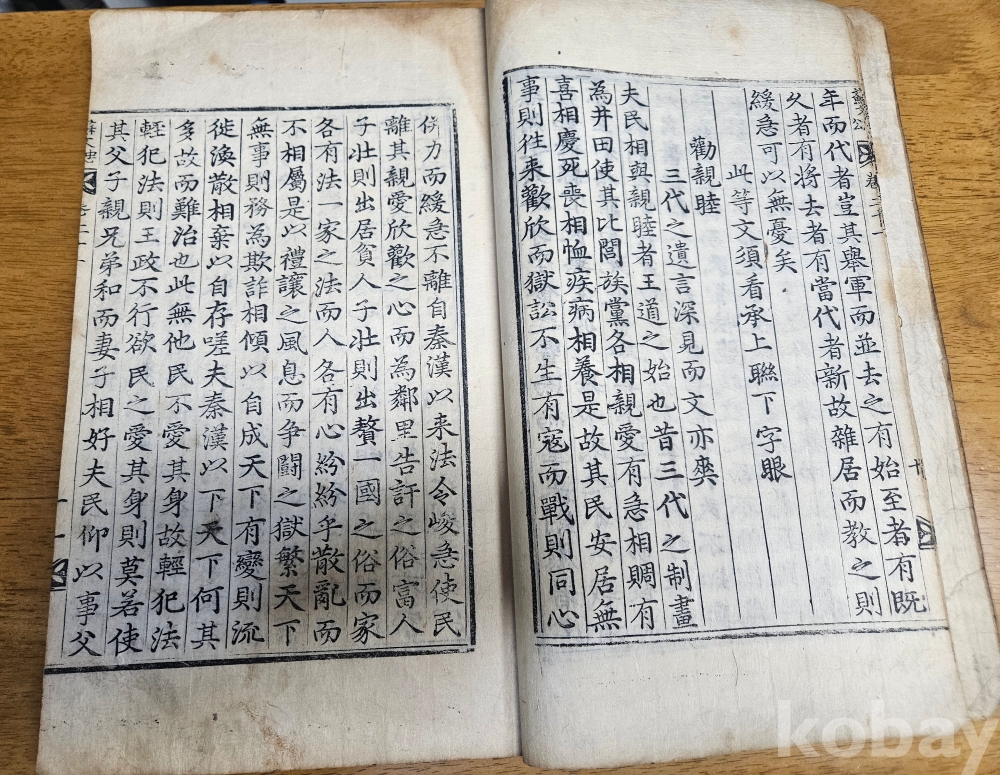 年而代者豈其舉軍而並去之有始至者有既
久者有将去者有當代者新故雜居而教之則
緩急可以無憂矣
此等文須看承上聯下字眼
勸親睦
三代之遺言深見而文亦爽
夫民相與親睦者王道之始也昔三代之制畫
為井田使其比閭族黨各相親愛有急相賙有
喜相慶死喪相恤疾病相養是故其民安居無
事則往来歡欣而獄訟不生有寇而戰則同心
併力而緩急不離自秦漢以来法令峻急使民
離其親愛欣歡之心而為鄰里告訐之俗富人
子壯則出居貧人子壯則出贅一國之俗而家
各有法一家之法而人各有心紛紛乎散亂而
不相屬是以禮讓之風息而争鬪之獄繁天下
無事則務為欺詐相傾以自成天下有變則流
徙渙散相棄以自存嗟夫秦漢以下天下何其
多故而難治也此無他民不愛其身故輕犯法
輕犯法則王政不行欲民之愛其身則莫若使
其父子親兄弟和而妻子相好夫民仰以事父
kobay